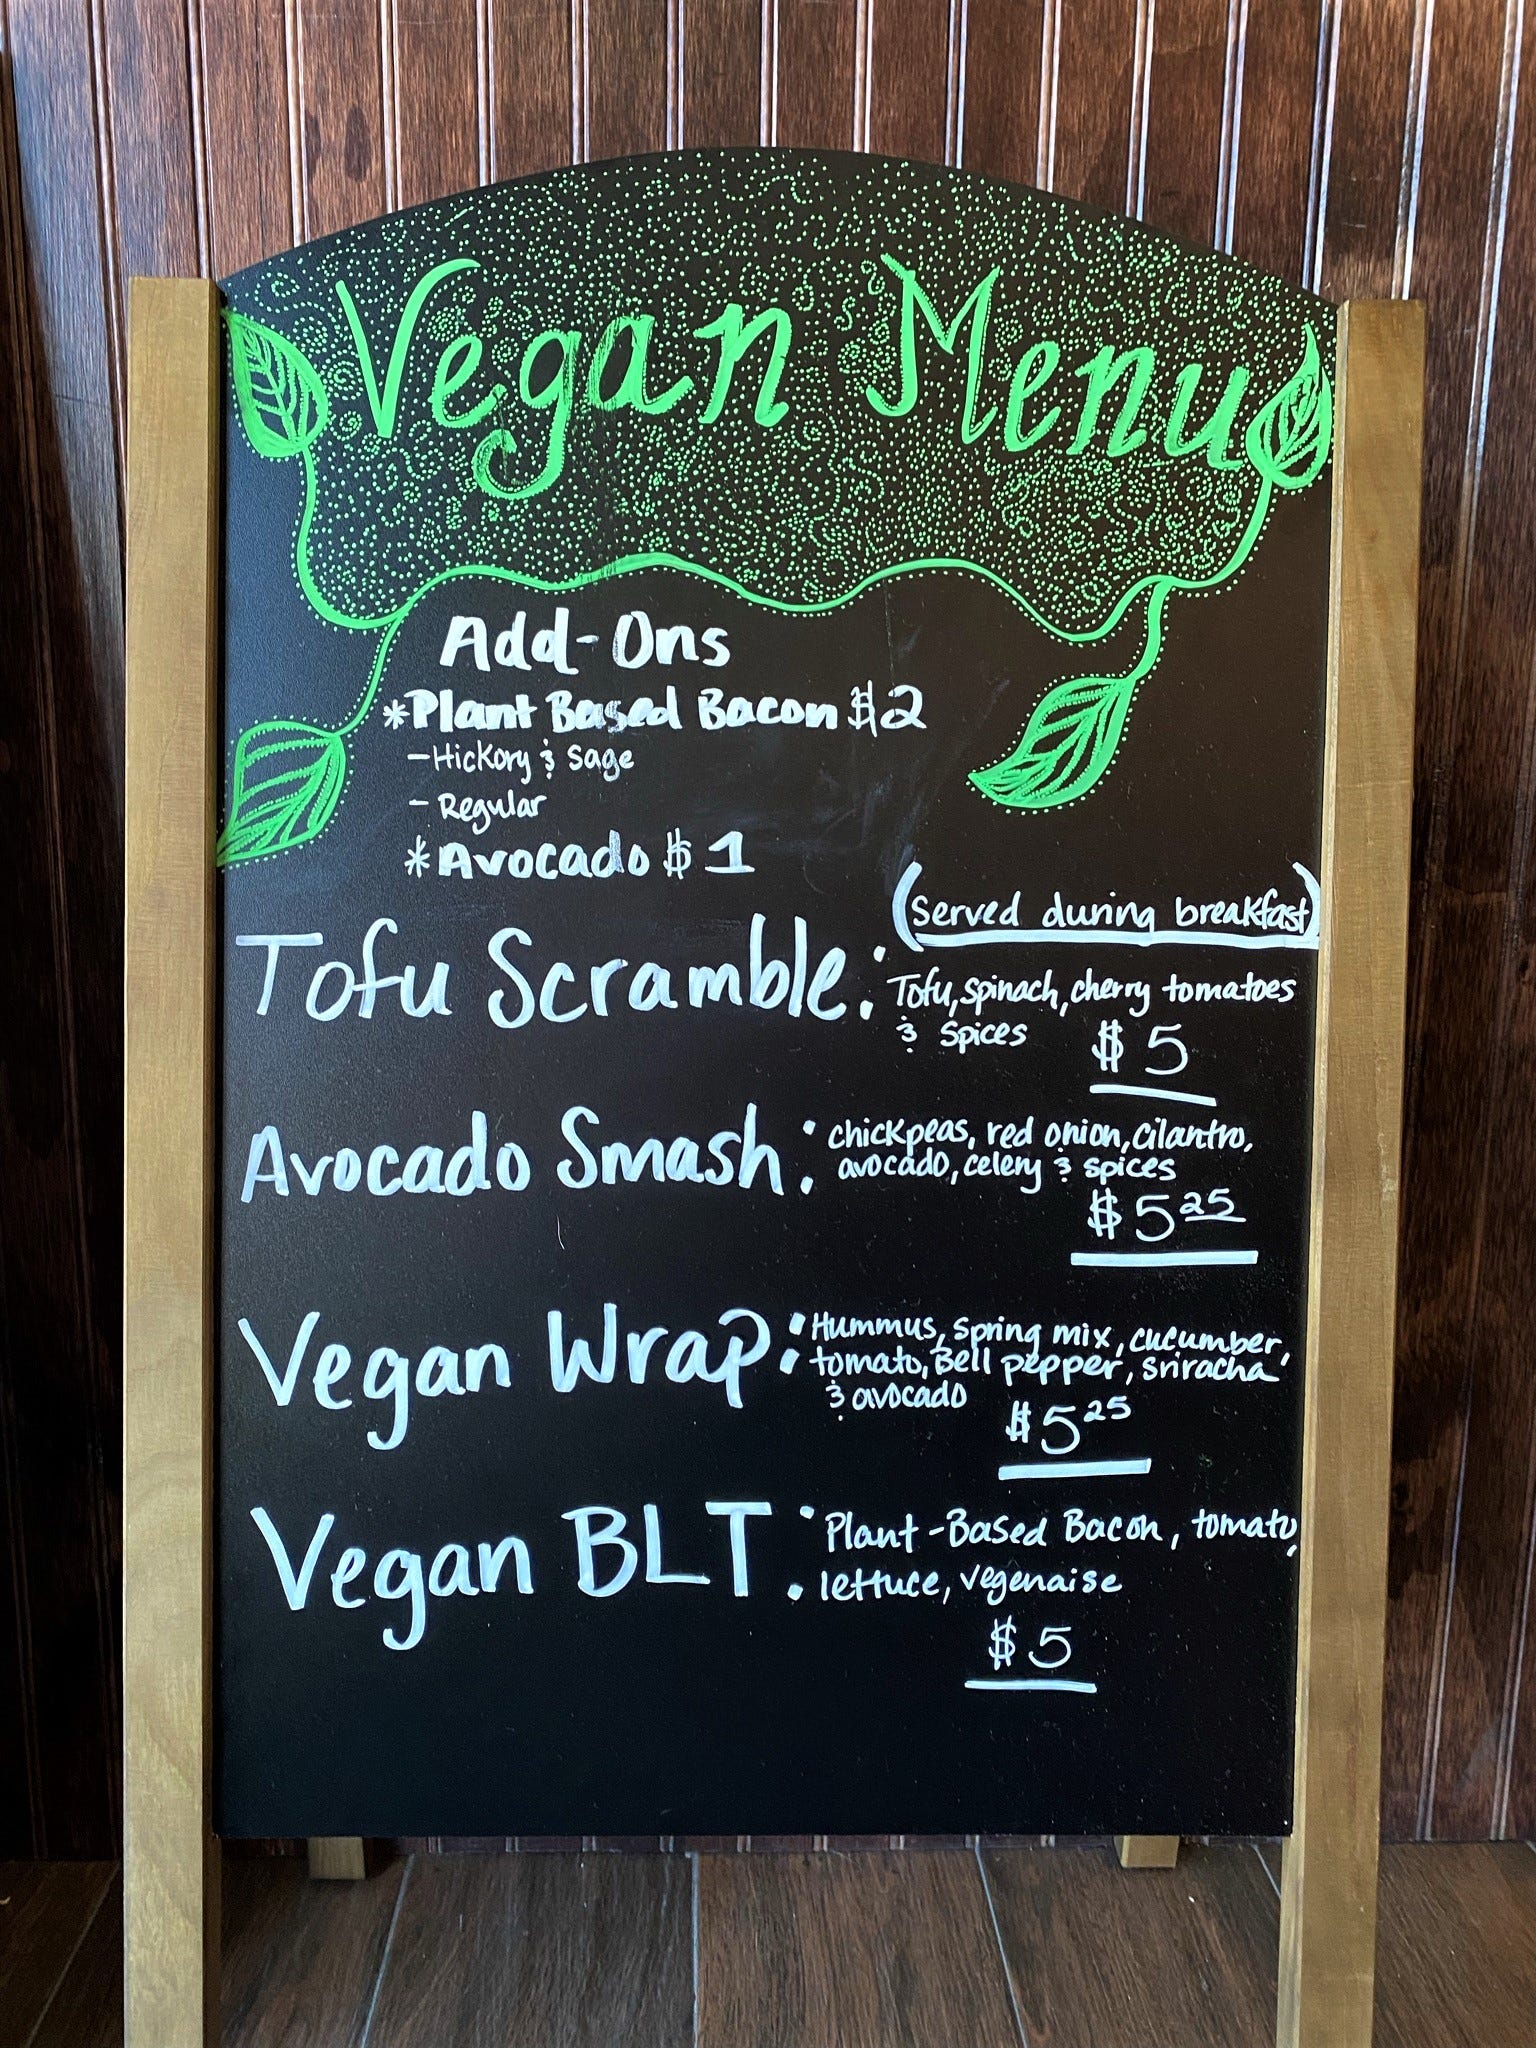 Vegan Menu
Add-Ons
*Plant Based Bacon $2
-Hickory & Sage
- Regular
*Avocado $1
(Served during breakfast)
Tofu Scramble: Tofu, spinach, cherry tomatoes
& Spices $5
Avocado Smash: chickpeas, red onion, cilantro,
avocado, celery & spices
$5 25
Vegan Wrap: Hummus, spring mix, cucumber,
tomato, Bell pepper, sriracha
& avocado
$5 25
Vegan BLT: Plant-Based Bacon, tomato,
lettuce, vegenaise
$5